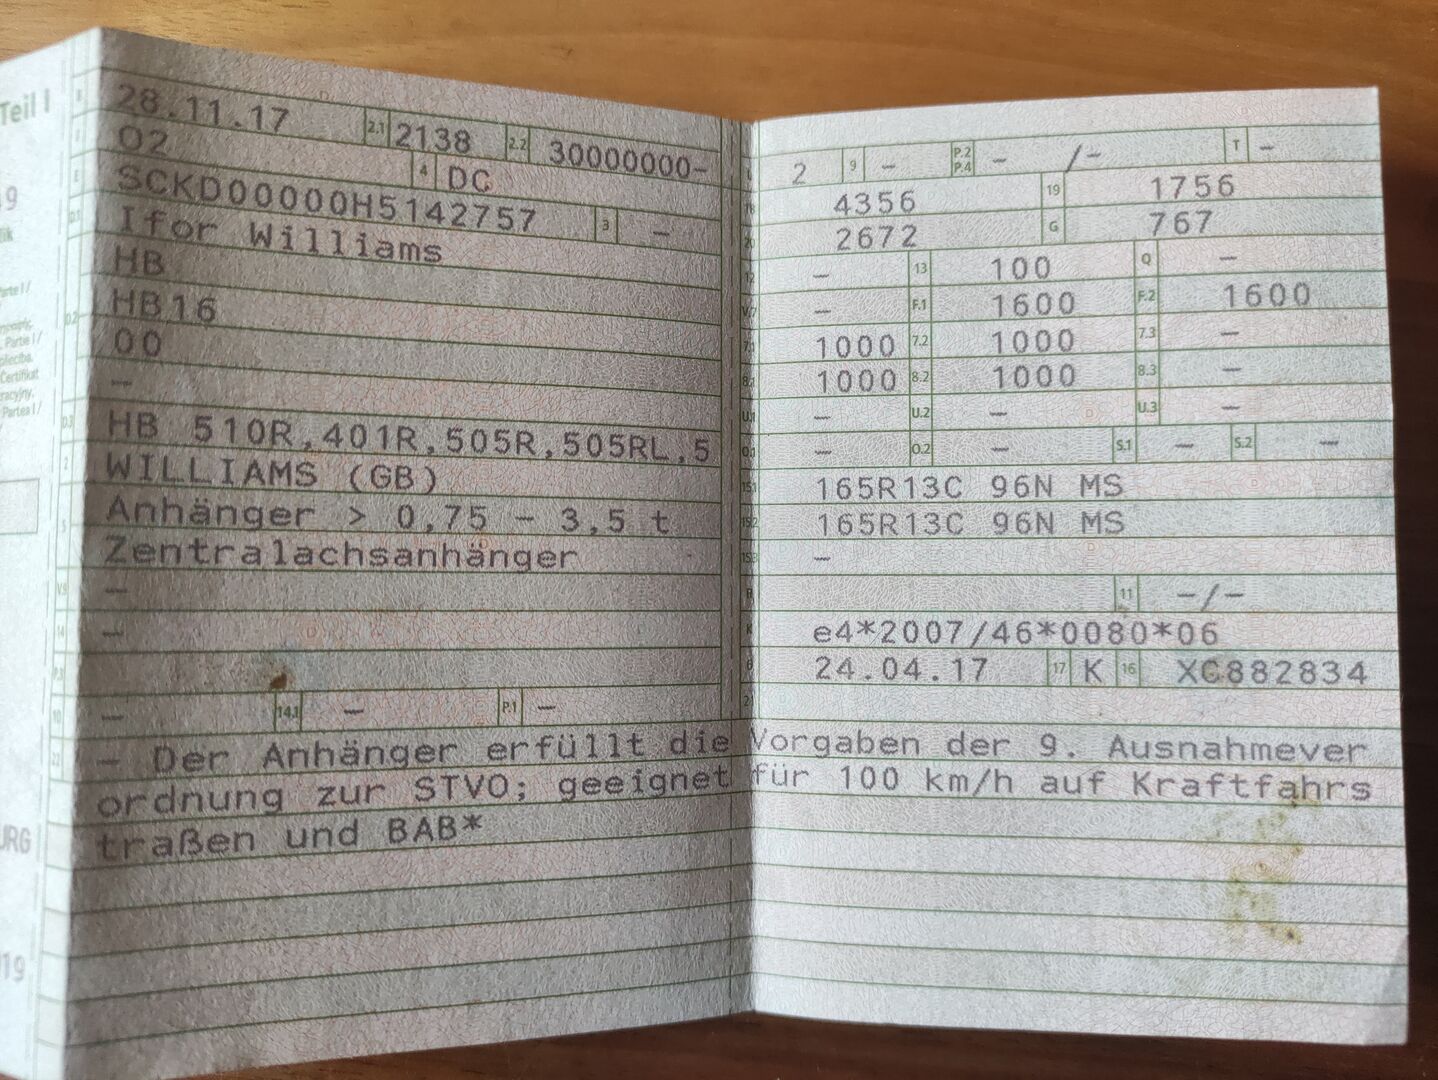 Teil I
B 28.11.17 2.1 2138 2.2 30000000-
J O2 4 DC
E SCKD00000H5142757 3 -
D.1 Ifor Williams
HB
D.2 HB16
00
-
D.3 HB 510R,401R,505R,505RL,5
2 WILLIAMS (GB)
5 Anhänger > 0,75 - 3,5 t
Zentralachsanhänger
V.9 -
14 -
P.3
10 - 14.1 - P.1 -
L 2 9 - P.2 P.4 - /- T -
18 4356 19 1756
20 2672 G 767
12 - 13 100 Q -
V.7 - F.1 1600 F.2 1600
7.1 1000 7.2 1000 7.3 -
8.1 1000 8.2 1000 8.3 -
U.1 - U.2 - U.3 -
O.1 - O.2 - S.1 - S.2 -
15.1 165R13C 96N MS
15.2 165R13C 96N MS
15.3 -
R 11 -/-
K e4*2007/46*0080*06
6 24.04.17 17 K 16 XC882834
21
22 - Der Anhänger erfüllt die Vorgaben der 9. Ausnahmever
ordnung zur STVO; geeignet für 100 km/h auf Kraftfahrs
traßen und BAB*